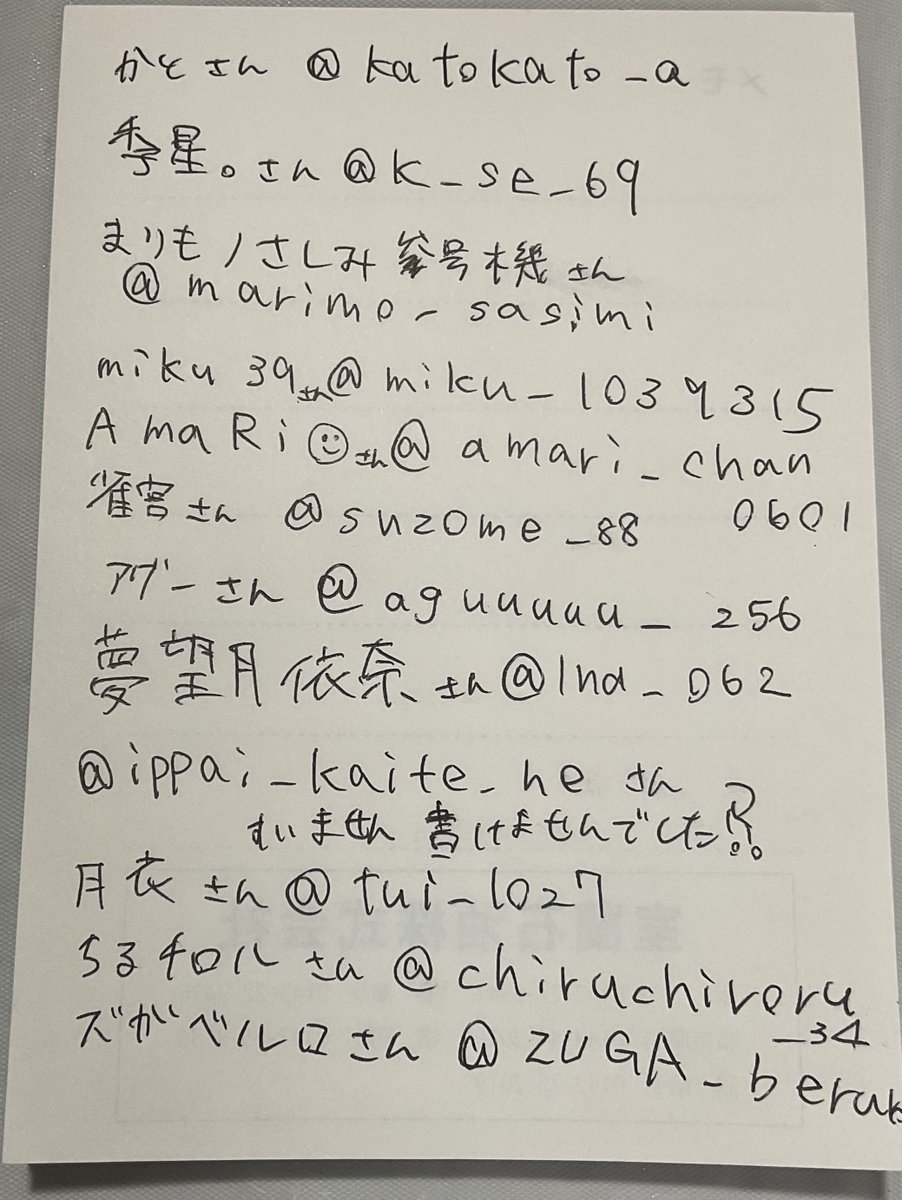 かとさん @katokato_a
季星。さん@k_se_69
まりも/さしみ参号機さん
@marimo_sasimi
miku 39さん@miku_1039315
AmaRi☺さん@amari_chan
雀宮さん @suzome_88 0601
アグーさん @aguuuuu_256
夢望月依奈さん@Ina_062
@ippai_kaite_neさん
すいません書けませんでした⁉
月衣さん@tui_1027
ちるチロルさん@chiruchiroru
_34
ズガベルロさん @ZUGA_beruk